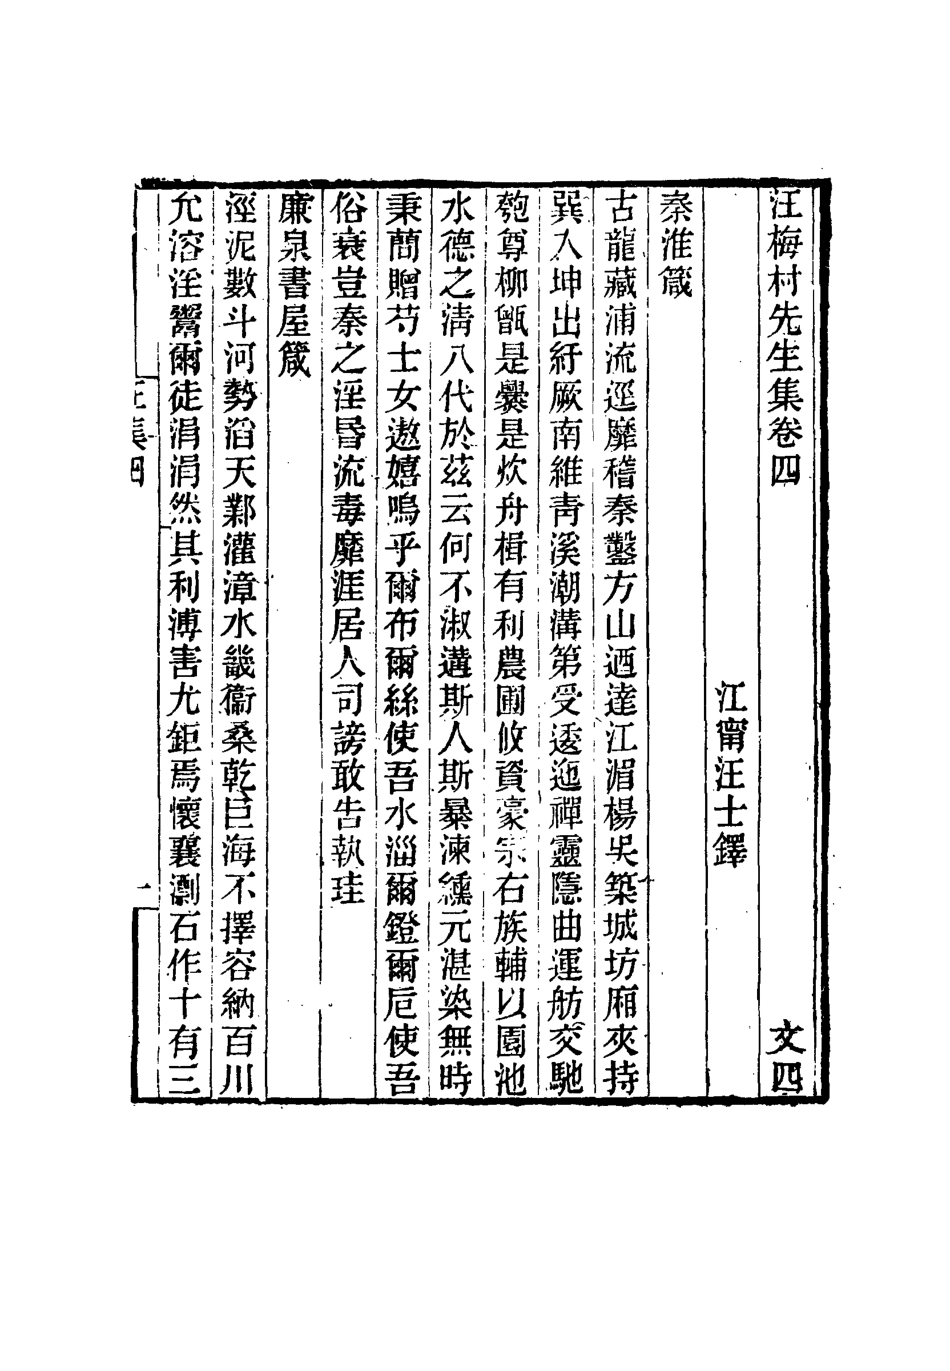 汪梅村先生集卷四
文四
江甯汪士鐸
秦淮箴
古龍藏浦流逕靡稽秦鑿方山迺達江湄楊吳築城坊厢夾持
巽入坤出紆厥南維青溪潮溝第受逶迤禪靈隱曲運舫交馳
匏尊柳甌是爨是炊舟楫有利農圃攸資豪宗右族輔以園池
水德之清八代於茲云何不淑遘斯人斯暴湅纁元湛染無時
秉蕑贈芍士女遨嬉嗚乎爾布爾絲使吾水淄爾鐙爾卮使吾
俗衰豈秦之淫昬流毒靡涯居人司謗敢告執珪
廉泉書屋箴
涇泥數斗河勢滔天鄴灌漳水畿衞桑乾巨海不擇容納百川
允溶淫鬻爾徒涓涓然其利溥害尤鉅焉懷襄劙石作十有三
汪集四
一